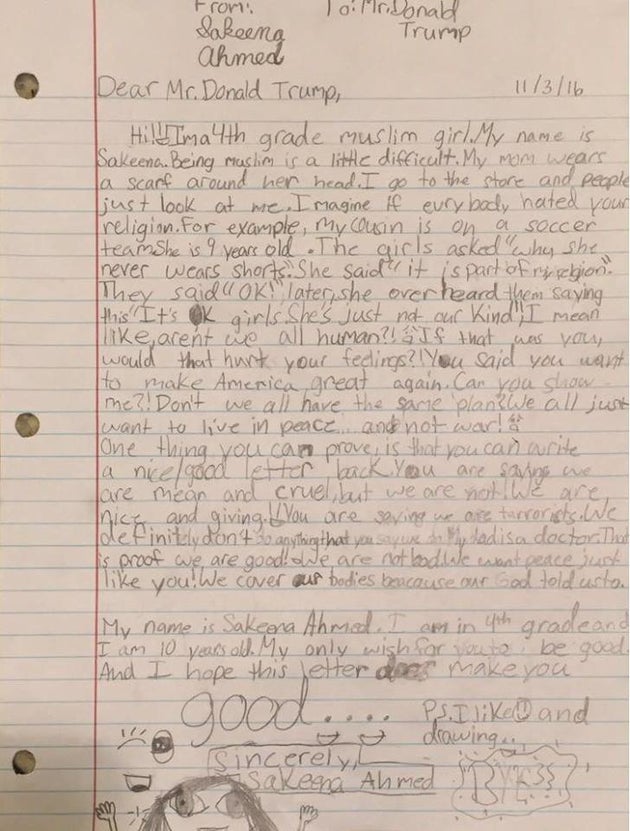 From: To: Mr. Donald
Sakeena Trump
Ahmed
Dear Mr. Donald Trump, 11/3/16
Hi!!! Im a 4th grade muslim girl. My name is
Sakeena. Being muslim is a little difficult. My mom wears
a scarf around her head. I go to the store and people
just look at me. Imagine if eurybody hated your
religion. For example, my cousin is on a soccer
team. She is 9 years old. The girls asked "why she
never wears shorts". She said "it is part of my religion".
They said "OK!" later, she over heard them saying
this "It's OK girls. She's just not our kind", I mean
like, aren't we all human?! If that was you,
would that hurt your feelings?! You said you want
to make America great again. Can you show
me?! Don't we all have the same plan? We all just
want to live in peace... and not war!
One thing you can prove, is that you can write
a nice/good letter back. You are saying we
are mean and cruel, but we are not! We are
nice and giving.!! You are saying we are tarrorists. We
definitely don't do anything that you say we do. My dad is a doctor. That
is proof we are good! We are not bad. We want peace just
like you! We cover our bodies beacause our God told us to.
My name is Sakeena Ahmed. I am in 4th grade and
I am 10 years old. My only wish for you to be good.
And I hope this letter does make you
good.... P.S. I like and
drawing..
Sincerely,
Sakeena Ahmed